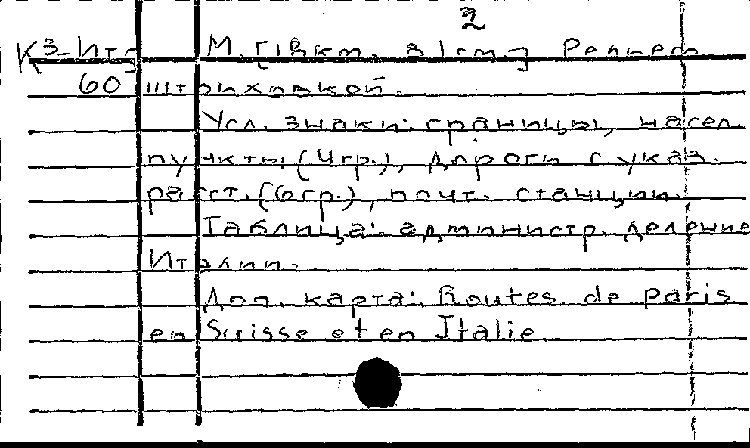 2
К3-Ит М. [18км. в 1см.] Рельеф
60 штриховкой.
Усл. знаки: границы, насел.
пункты (4гр.), дороги с указ.
расст. (6гр.), почт. станции.
Таблица: администр. деление
Италии.
Доп. карта: Routes de Paris
en Suisse et en Italie